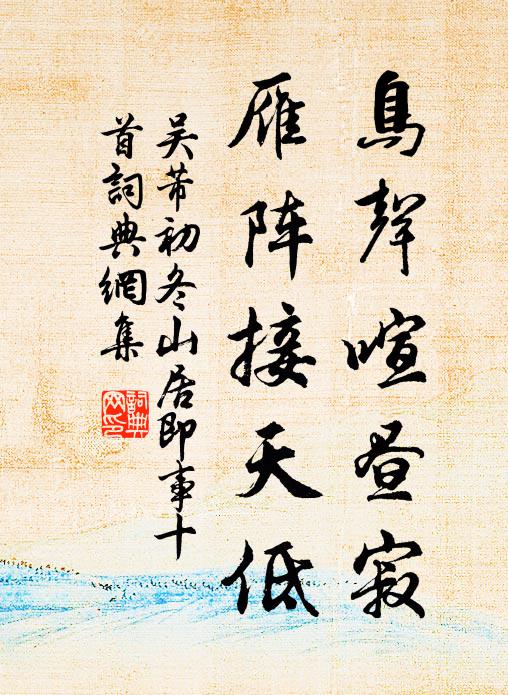 鳥聲喧昼寂
雁阵接天低
吴芾初冬山居即事十
首詞典網集
詞典
网印